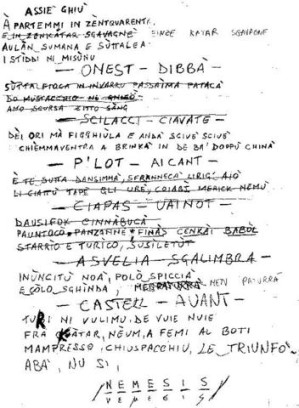 ASSIÈ GHIÙ
À PARTEMMI IN ZENTQUARENTI
E IN ZENICATAR SGAVAGNÈ SINCE KATAR SGAVAONE
AULÀN, SUMANA E SÙTTALEA
I STIDDI NI MISÙNU
— ONEST — DIBBÀ —
SÙTTA FIOCA IN INVARRU PASSAIMA PATACA
DO MUSTACCHIO NE
AMO SCURSA ZITTO SANG
— SCILACCI — CIAVATE —
DEI ORI MÀ FIGGHIÙLA E ANDÀ SCIUÈ SCIUÈ
CHIÈMMAVENTRA A BRINKÀ IN DE BA' DOPPÙ CHINA
— P'LOT — AICANT —
È TE BUTTA DANSIMMÀ, SFRANNECA LIRIG' AIO
LI CIATU TAPÈ GLI URE, MERICK NEMÙ
— CIAPAS — VAINOT —
DAUSIFOX CINNÀBUCA
PAUNTOCO PANZONNE FINAS CENRÀI BABÒL
STARRIO E TURICO, SUSILETÙT
— ASVELIA — SGALIMBRA —
INÙNCITÙ NOÀ, POLÒ SPICCIA
E SÒLO SGHINDA, MEN PATURRÀ
— CASTELL — AVANT —
TURI NI VULIMU DE VUIE NUIE
FRA KATAR, NÈUM, A FEMI AL BOTI
MAMPRESSO, CHIUSPACCHIU, LE TRIUNFO
ABÀ, NU SI,
NEMESIS